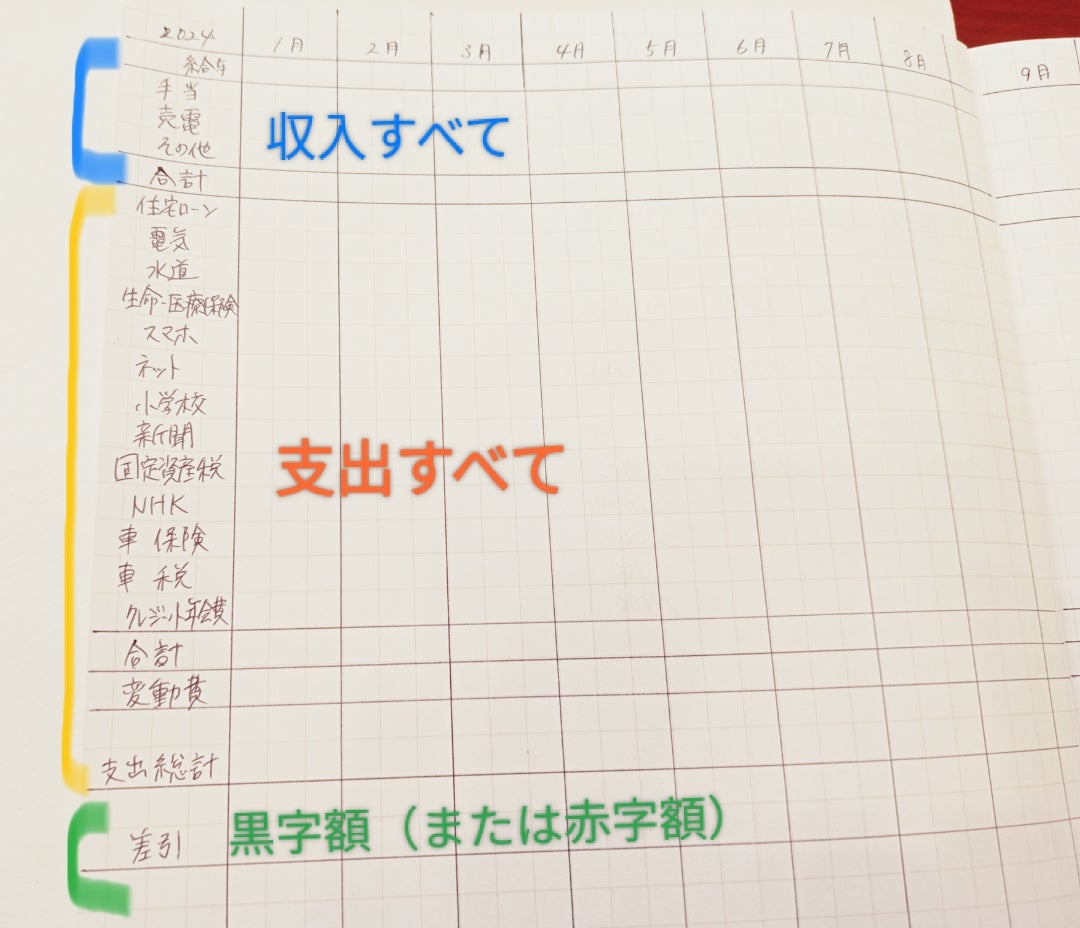 2024 1月 2月 3月 4月 5月 6月 7月 8月 9月
給与
手当
売電
その他
収入すべて
合計
住宅ローン
電気
水道
生命・医療保険
スマホ
ネット
小学校
新聞
固定資産税
支出すべて
NHK
車 保険
車 税
クレジット年会費
合計
変動費
支出総計
差引
黒字額（または赤字額）